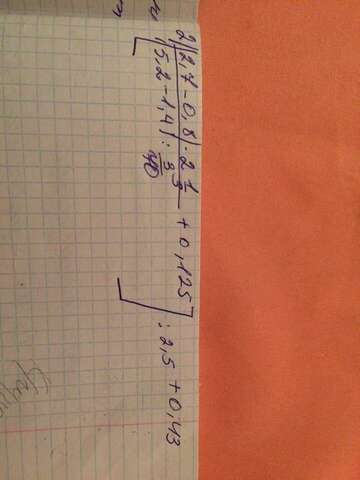 2) [ (2,7-0,8)·2 1/3
(5,2-1,4) : 3/40 + 0,125 ] : 2,5 + 0,43